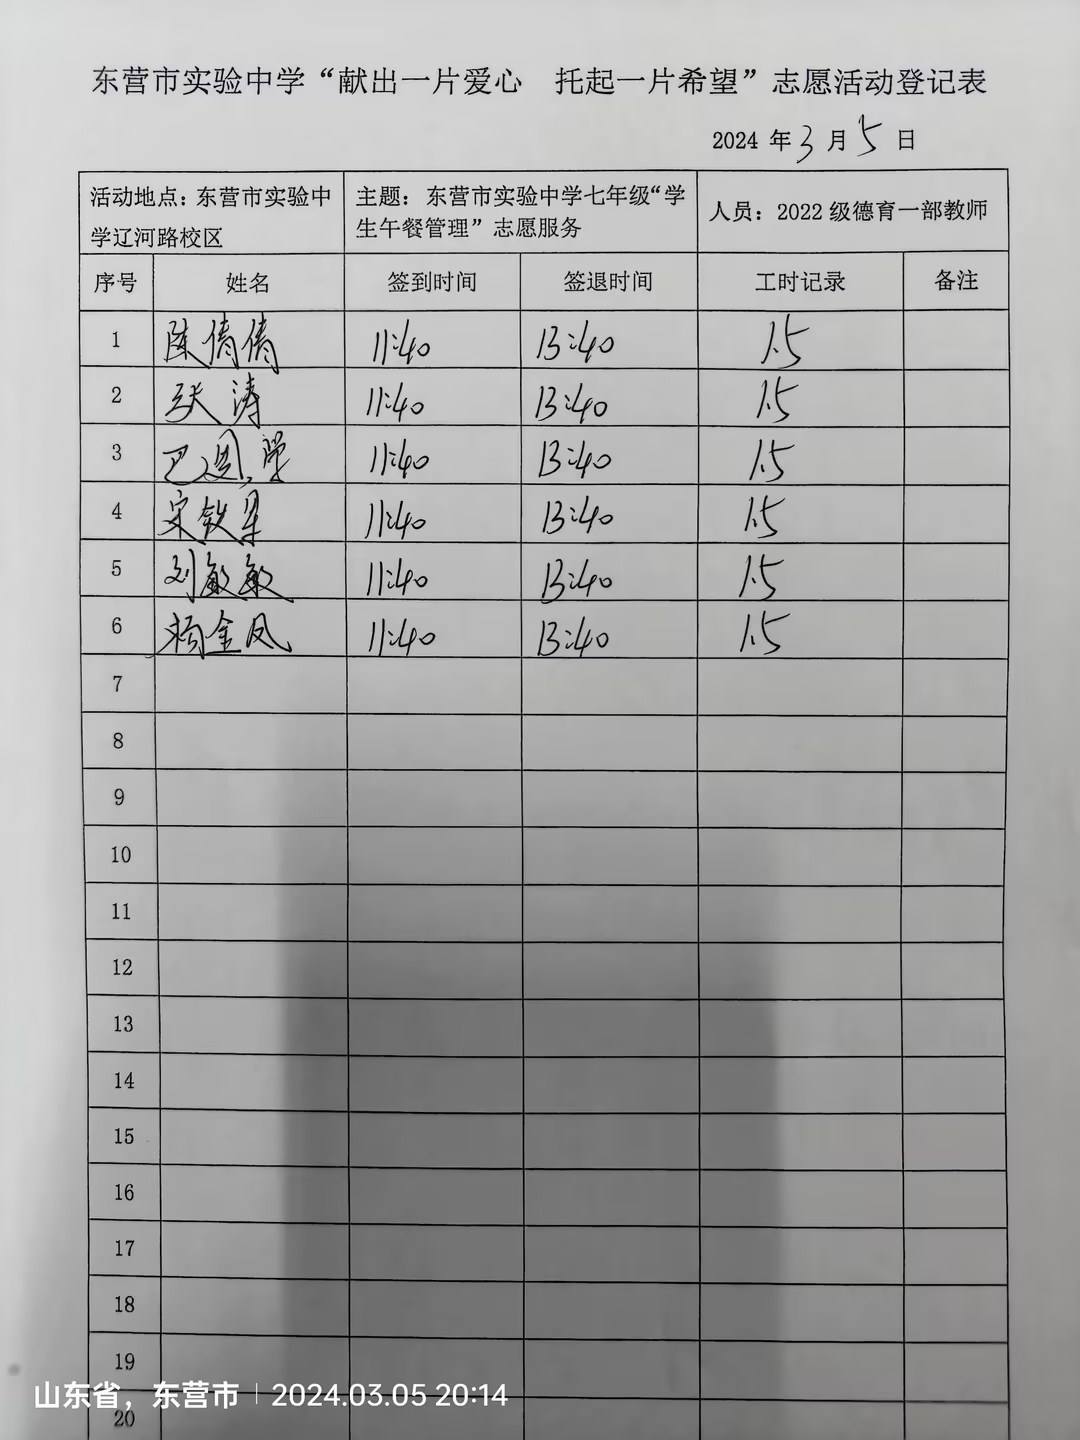 东营市实验中学“献出一片爱心 托起一片希望”志愿活动登记表
2024 年 3 月 5 日
活动地点：东营市实验中
学辽河路校区
主题：东营市实验中学七年级“学
生午餐管理”志愿服务
人员：2022 级德育一部教师
序号 姓名 签到时间 签退时间 工时记录 备注
1 陈倩倩 11:40 13:40 1.5
2 张涛 11:40 13:40 1.5
3 巴 11:40 13:40 1.5
4 宋 11:40 13:40 1.5
5 刘敏敏 11:40 13:40 1.5
6 杨金凤 11:40 13:40 1.5
7
8
9
10
11
12
13
14
15
16
17
18
19
20
山东省，东营市 2024.03.05 20:14